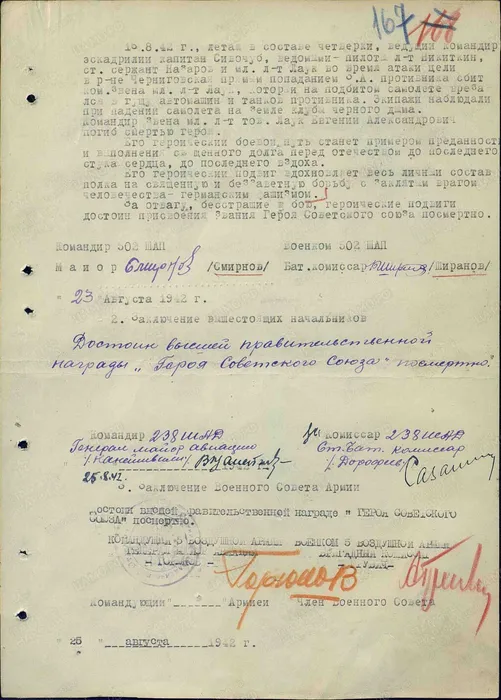 167 168
16.8.42 г., летая в составе четверки, ведущий командир
эскадрилии капитан Сивочуб, ведомыми- пилоты л-т Никитин,
ст. сержант Назаров и мл. л-т Лаук во время атаки цели
в р-не Черниговская прямым попаданием З.А. противника сбит
ком.звена мл. л-т Лаук, который на подбитом самолете врезал-
ся в гущу автомашин и танков противника. Экипажи наблюдали
при падении самолета на земле клуба черного дыма.
Командир звена мл. л-т тов. Лаук Евгений Александрович
погиб смертью героя.
Его героический боевой путь станет примером преданности
и выполнения священного долга перед отечеством до последнего
стука сердца, до последнего вздоха.
Его героический подвиг вдохновляет весь личный состав
полка на священную и беззаветную борьбу с заклятым врагом
человечества- германским фашизмом.
За отвагу, бесстрашие в бою, героические подвиги
достоин присвоения звания Героя Советского союза посмертно.
Командир 502 ШАП Военком 502 ШАП
Майор /Смирнов/ Бат.комиссар /Ширанов/
"23" Августа 1942 г.
2. Заключение вышестоящих начальников
Достоин высшей правительственной
награды „Герой Советского Союза" посмертно.
Командир 238 ШАД За Комиссар 238 ШАД
Генерал майор авиации Ст. Бат. комиссар
25.8.42
3. Заключение Военного Совета Армии
Достоин высшей правительственной награде " ГЕРОЯ СОВЕТСКОГО
СОЮЗА" посмертно.
КОМАНДУЮЩИЙ 5 ВОЗДУШНОЙ АРМИИ ВОЕНКОМ 5 ВОЗДУШНОЙ АРМИИ
БРИГАДНЫЙ КОМИССАР
Горюнов
Командующий "_____" Армией Член Военного Совета
"26" августа 1942 г.